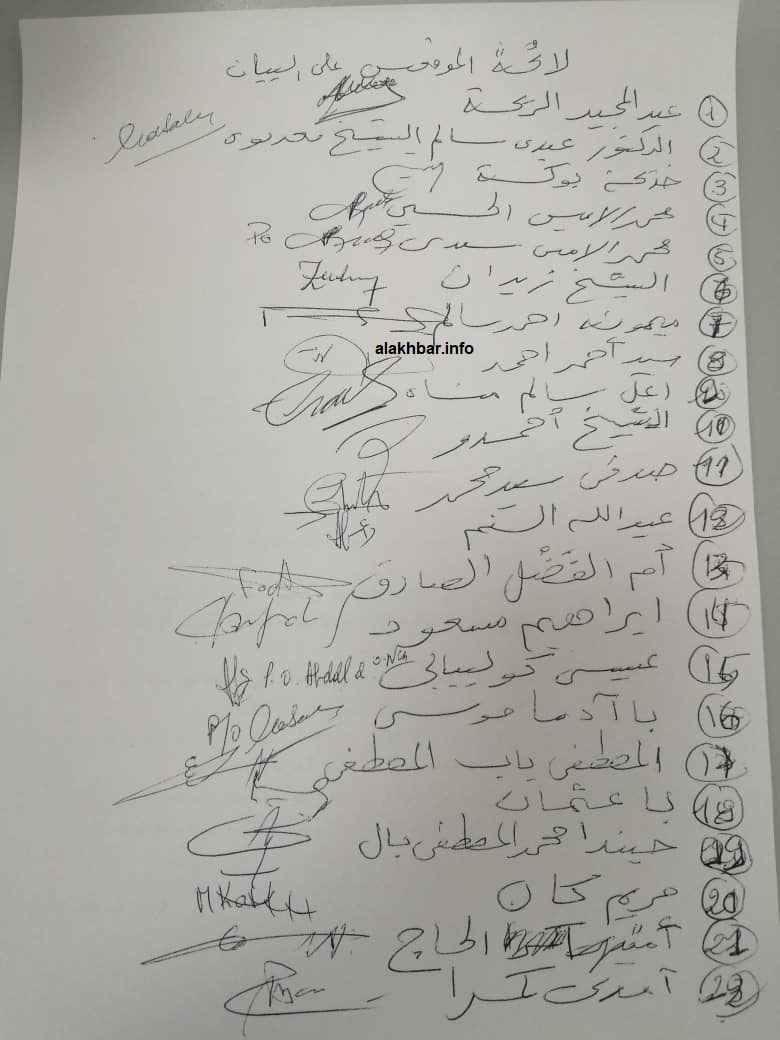 لائحة الموقعين على البيان
1 عبد المجيد الريحة
2 الدكتور عبدي سالم الشيخ سعدبوه
3 خديجة بوكسة
4 محمد الامين
5 محمد الامين سيدي Po
6 الشيخ زيدان
7 ميمونة احمد سالم
alakhbar.info
8 سيد أحمد احمد
اعل سالم مناه
10 الشيخ أحمدو
11 صدفي سيد محمد
12 عبد الله
13 أم الفَضْل الصادق
14 ابراهيم مسعود
15 عيسى كوليبالي P.O. Abdal
16 با آدما موسى P/O
17 المصطفى باب المصطفى
18 با عثمان
19 محمد المصطفى بال
20 مريم كان
21 الحاج
22 آمدي كمرا